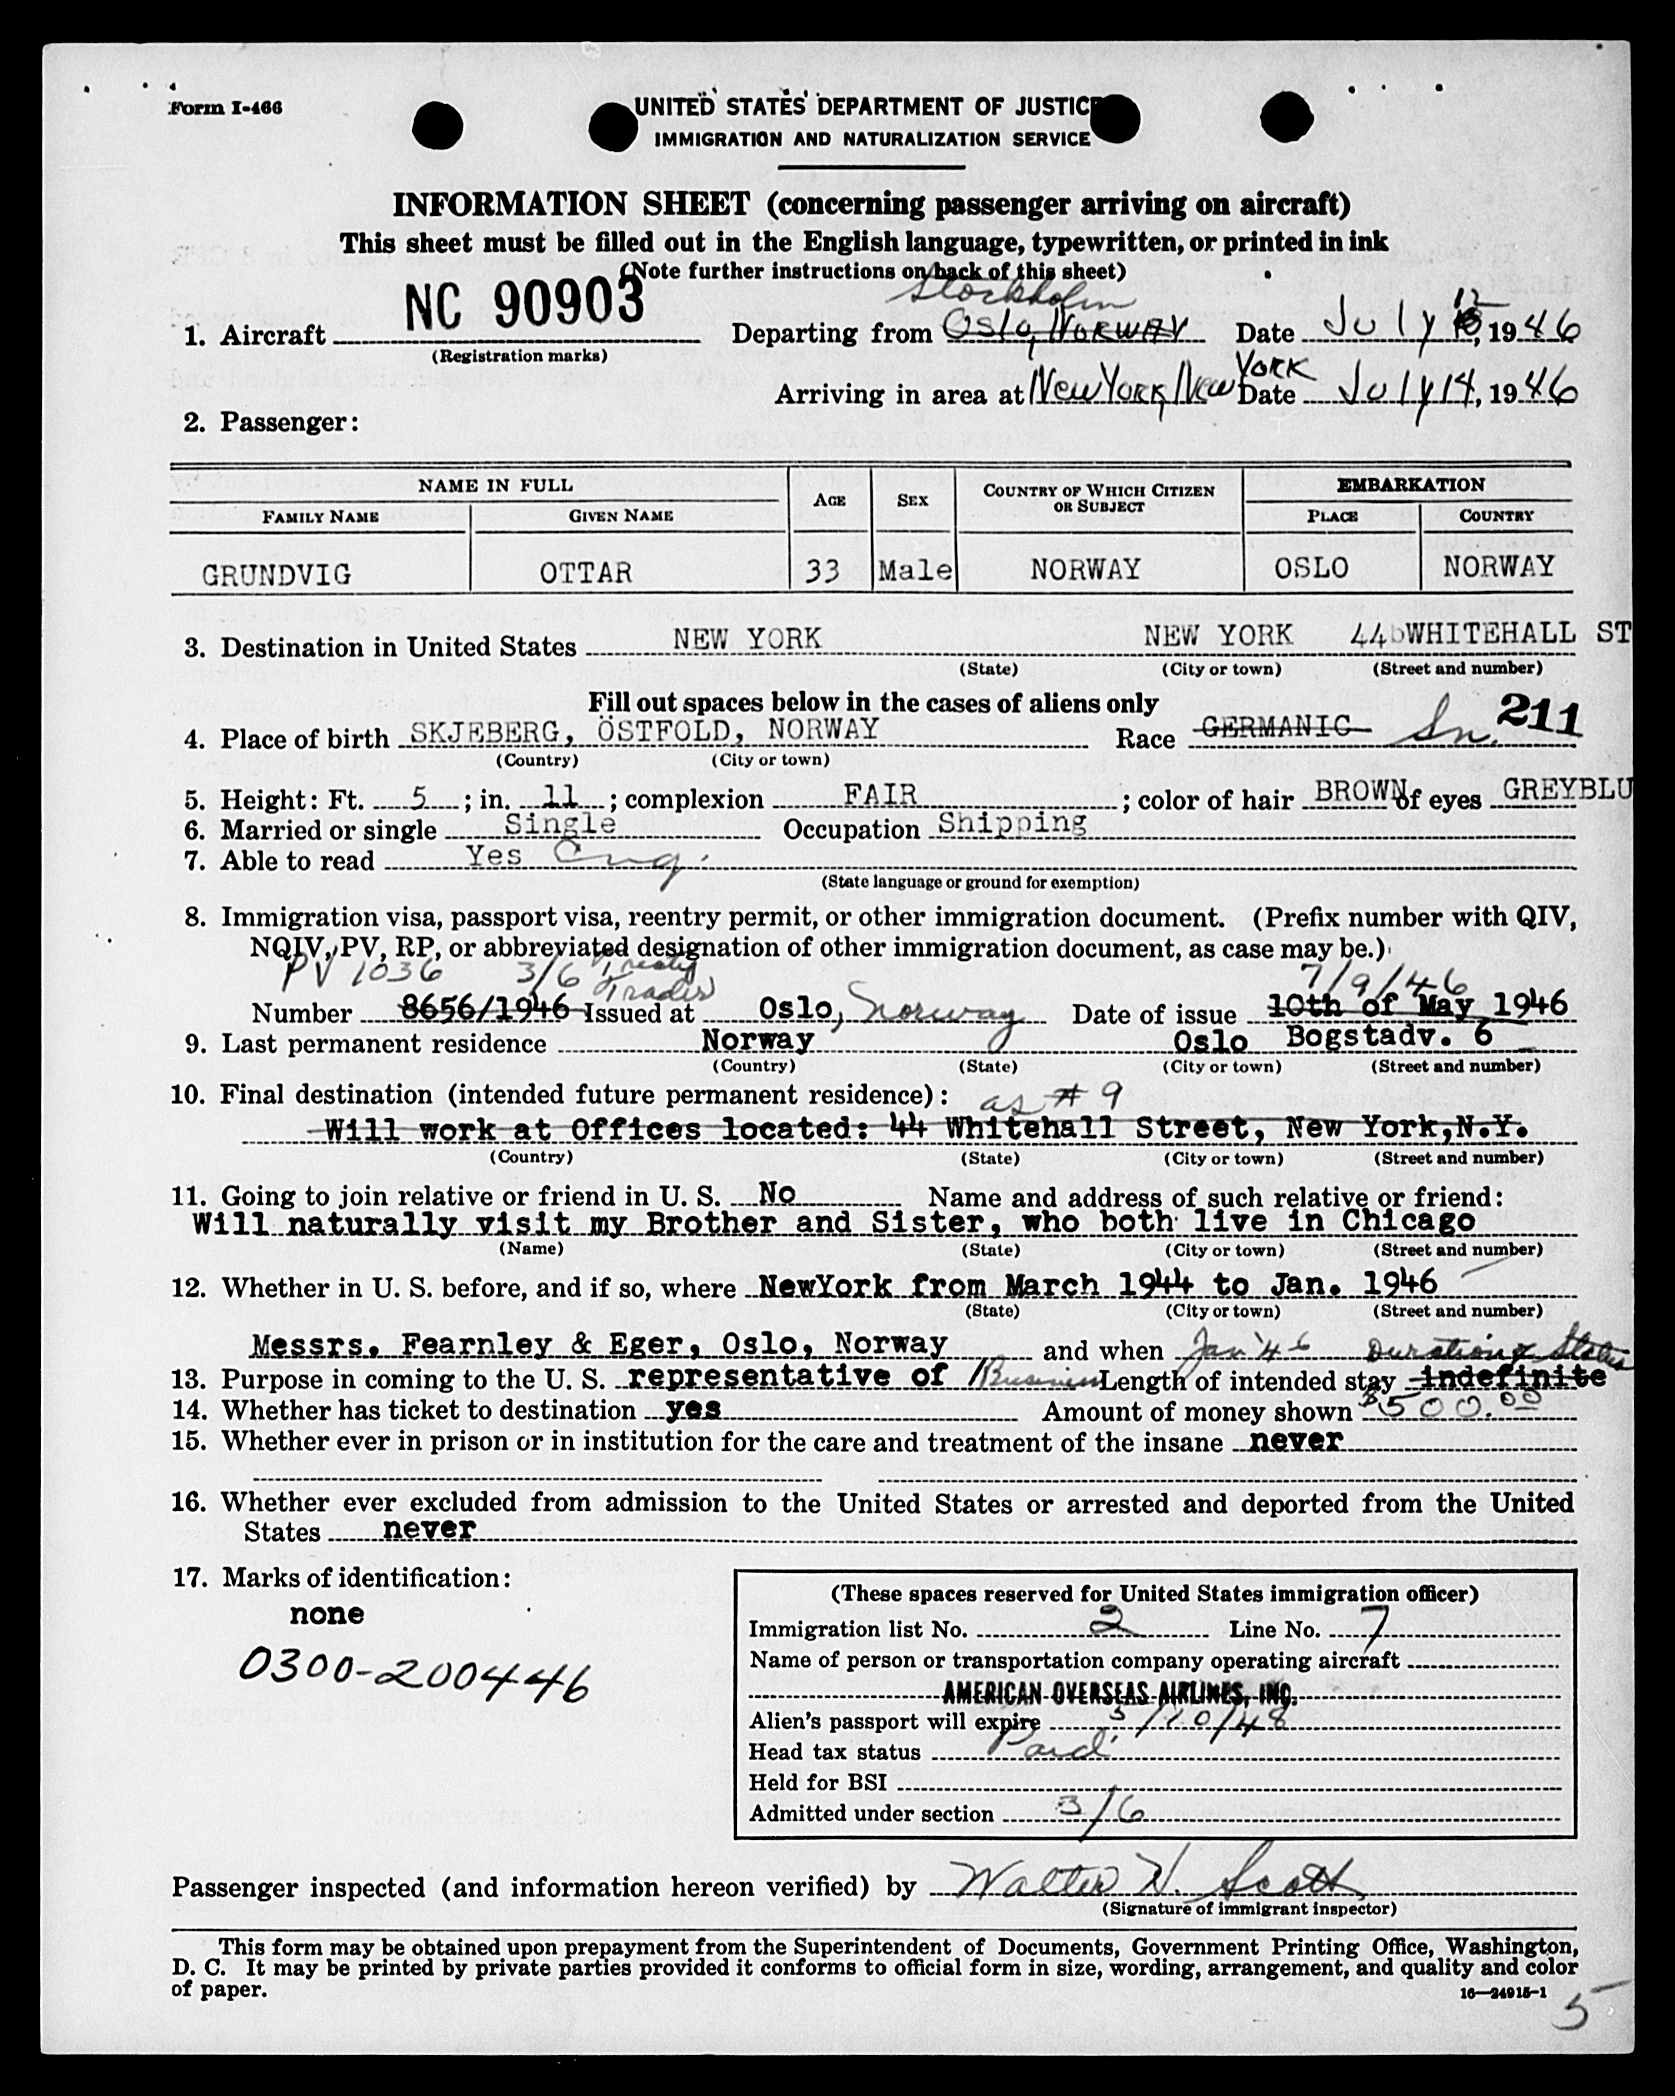 Form I-466
UNITED STATES DEPARTMENT OF JUSTICE
IMMIGRATION AND NATURALIZATION SERVICE
INFORMATION SHEET (concerning passenger arriving on aircraft)
This sheet must be filled out in the English language, typewritten, or printed in ink
(Note further instructions on back of this sheet)
Stockholm
12
1. Aircraft NC 90903 Departing from Oslo, Norway Date July , 1946
(Registration marks)
Arriving in area at New York, New York Date July 14, 1946
2. Passenger:
NAME IN FULL AGE SEX COUNTRY OF WHICH CITIZEN OR SUBJECT EMBARKATION
FAMILY NAME GIVEN NAME PLACE COUNTRY
GRUNDVIG OTTAR 33 Male NORWAY OSLO NORWAY
3. Destination in United States NEW YORK NEW YORK 44 WHITEHALL ST
(State) (City or town) (Street and number)
Fill out spaces below in the cases of aliens only
211
4. Place of birth SKJEBERG, ÖSTFOLD, NORWAY Race GERMANIC Sn.
(Country) (City or town)
5. Height: Ft. 5 ; in. 11 ; complexion FAIR ; color of hair BROWN of eyes GREYBLU
6. Married or single Single Occupation Shipping
7. Able to read Yes Eng.
(State language or ground for exemption)
8. Immigration visa, passport visa, reentry permit, or other immigration document. (Prefix number with QIV,
NQIV, PV, RP, or abbreviated designation of other immigration document, as case may be.)
PV 1036 3/6 Treaty Trader 7/9/46
Number 8656/1946 Issued at Oslo, Norway Date of issue 10th of May 1946
9. Last permanent residence Norway Oslo Bogstadv. 6
(Country) (State) (City or town) (Street and number)
10. Final destination (intended future permanent residence): as # 9
Will work at Offices located: 44 Whitehall Street, New York,N.Y.
(Country) (State) (City or town) (Street and number)
11. Going to join relative or friend in U. S. No Name and address of such relative or friend:
Will naturally visit my Brother and Sister, who both live in Chicago
(Name) (State) (City or town) (Street and number)
12. Whether in U. S. before, and if so, where NewYork from March 1944 to Jan. 1946
(State) (City or town) (Street and number)
Messrs. Fearnley & Eger, Oslo, Norway and when Jan '46 Duration of Status
13. Purpose in coming to the U. S. representative of / Business Length of intended stay indefinite
14. Whether has ticket to destination yes Amount of money shown $500.00
15. Whether ever in prison or in institution for the care and treatment of the insane never
16. Whether ever excluded from admission to the United States or arrested and deported from the United
States never
17. Marks of identification:
none
0300-200446
(These spaces reserved for United States immigration officer)
Immigration list No. 2 Line No. 7
Name of person or transportation company operating aircraft
AMERICAN OVERSEAS AIRLINES, INC.
Alien's passport will expire 5/10/48
Head tax status Paid
Held for BSI
Admitted under section 3/6
Passenger inspected (and information hereon verified) by Walter W. Scott
(Signature of immigrant inspector)
This form may be obtained upon prepayment from the Superintendent of Documents, Government Printing Office, Washington,
D. C. It may be printed by private parties provided it conforms to official form in size, wording, arrangement, and quality and color
of paper.
16—24915-1
5